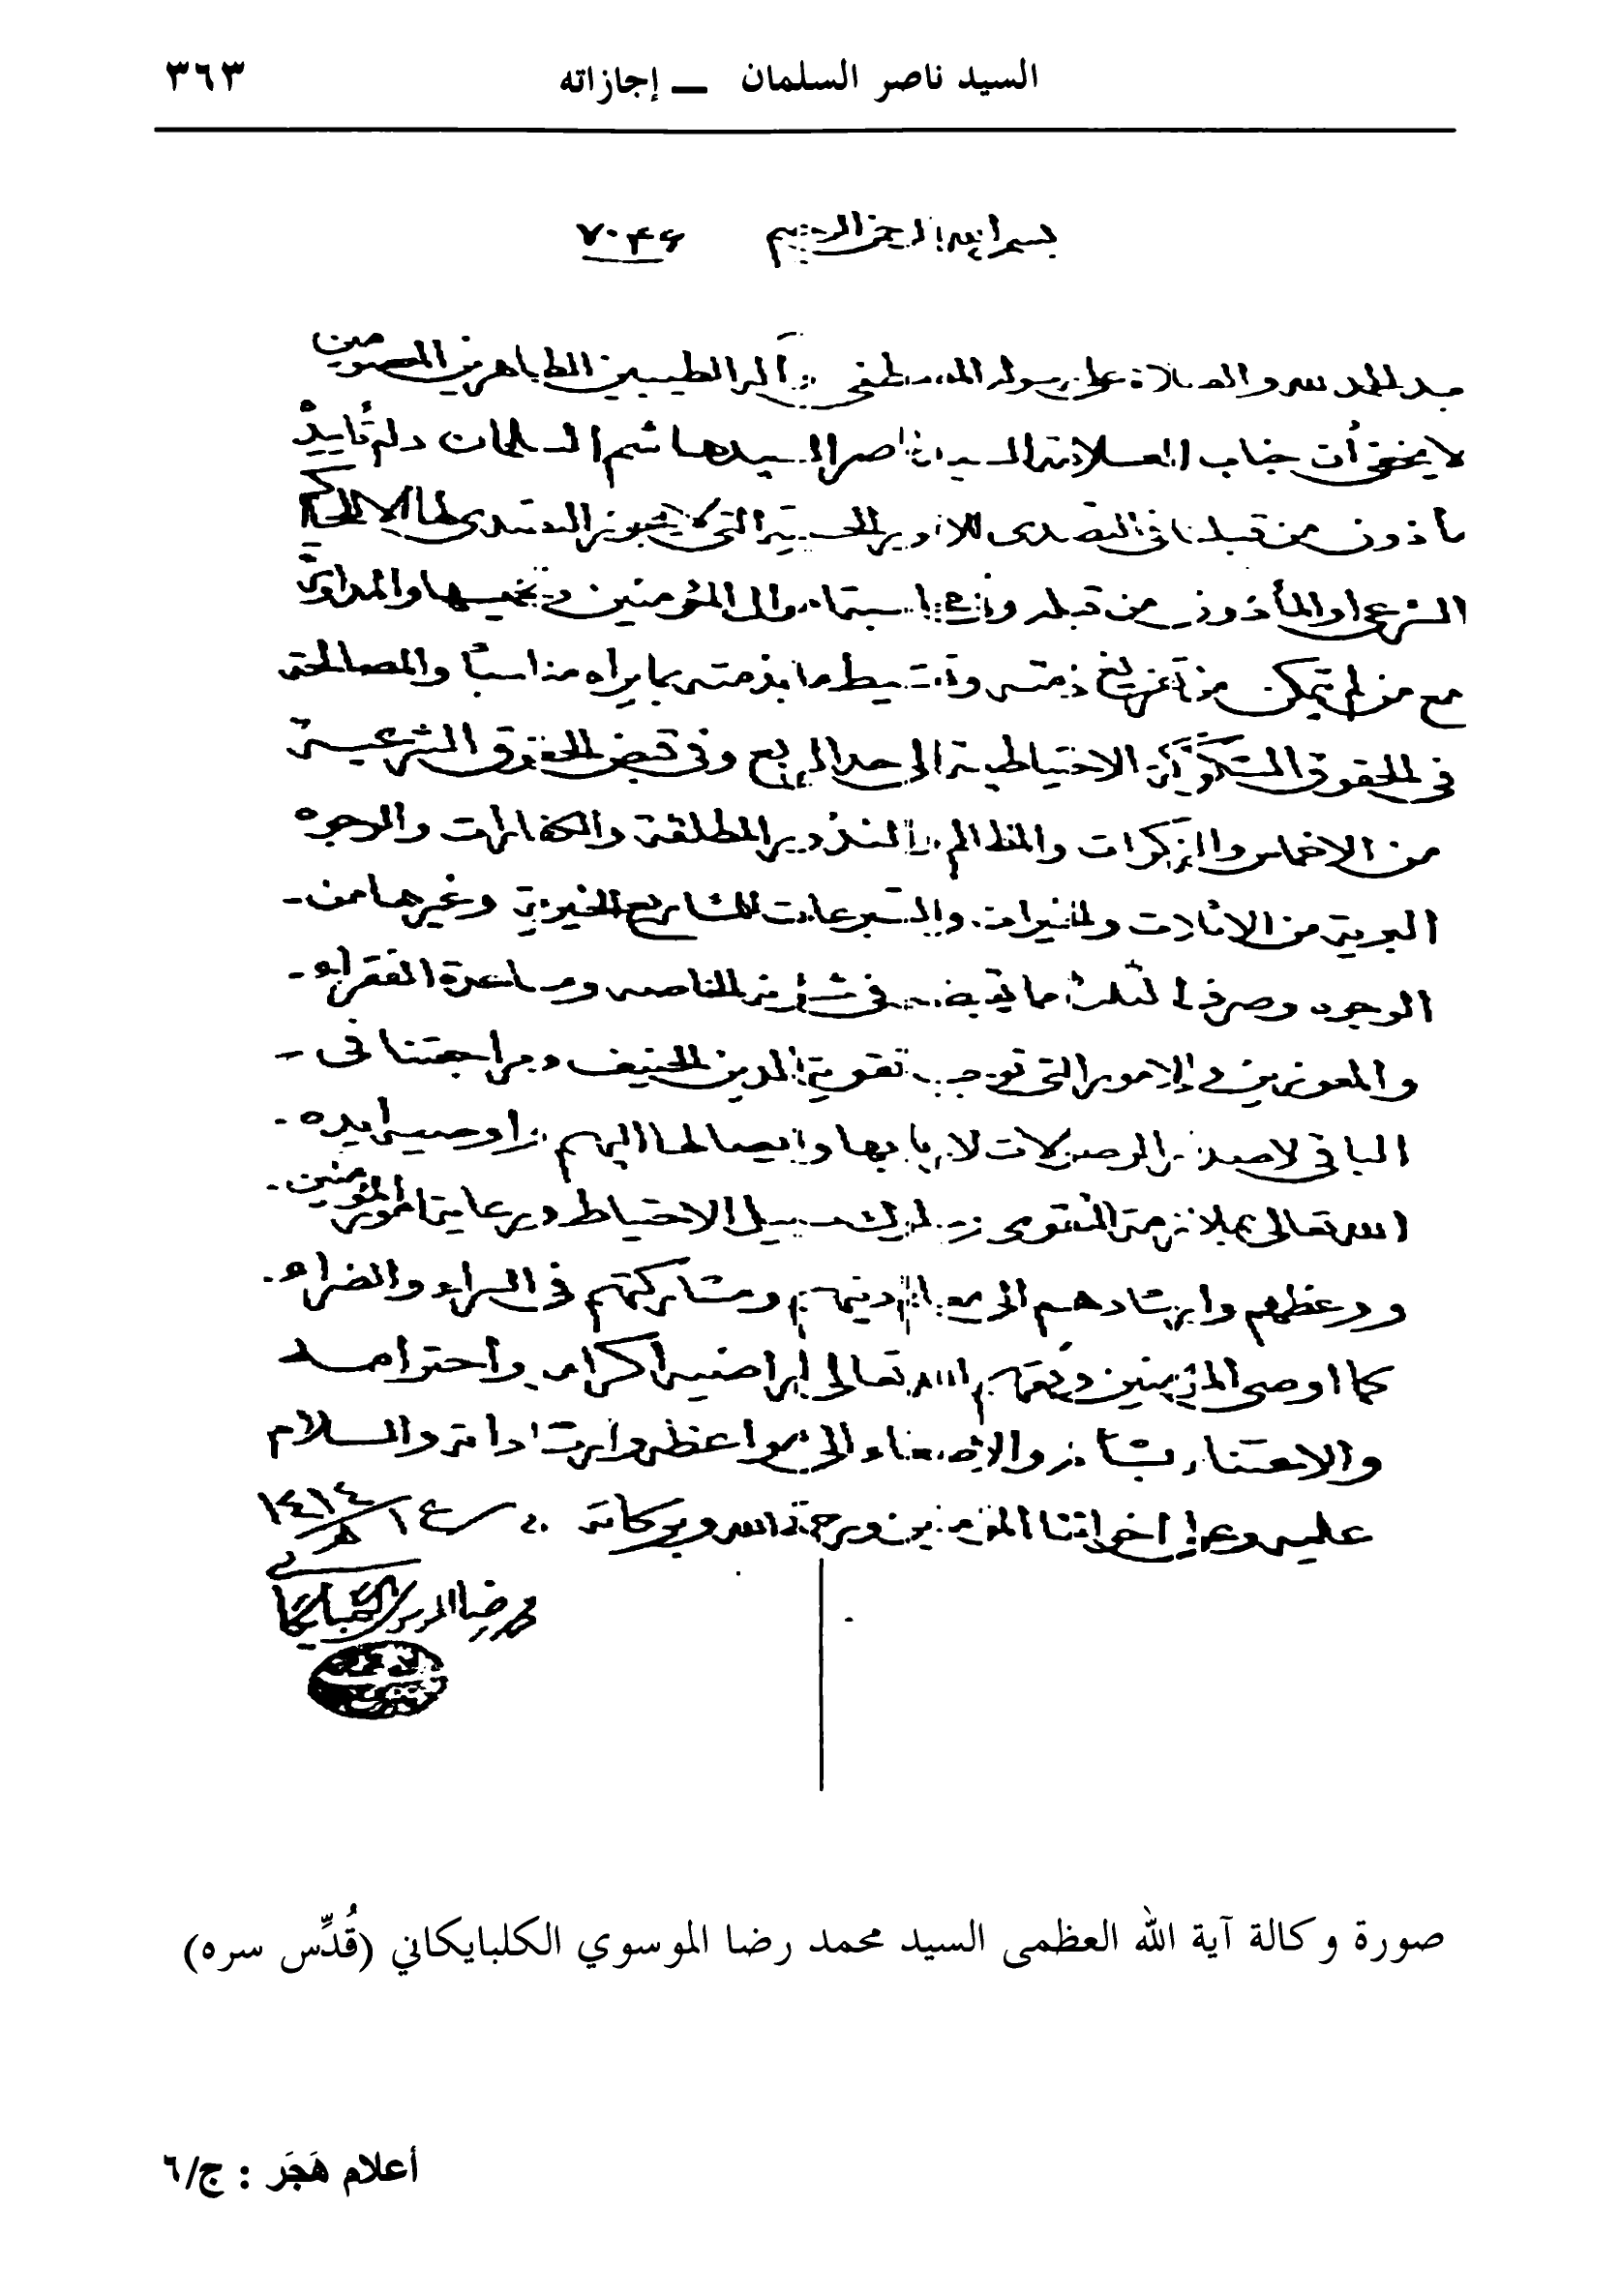 السيد ناصر السلمان — إجازاته ٣٦٣
بسم الله الرحمن الرحيم ٧٠٤۶
بعد الحمد لله والصلاة على رسوله المصطفى وآله الطيبين الطاهرين المعصومين
لا يخفى أن جناب العلامة السيد ناصر السيد هاشم السلمان دام تأييده
مأذون من قبلنا في التصدى للامور الحسبية التي لا يجوز التصدى لها الا للحاكم
الشرعي او المأذون من قبله وفي استيفاء اموال المؤمنين وتخميسها والمداورة
مع من لم يتمكن من تفريغ ذمته وتقسيط ما بذمته بما يراه مناسبًا والمصالحة
في الحقوق المشكوكة الاحتياطية الى حد الربع وفي قبض الحقوق الشرعية
من الاخماس والزكوات والمظالم والنذور المطلقة والكفارات والوجوه
البرية من الاثلاث والخيرات والتبرعات للمشاريع الخيرية وغيرها من
الوجوه وصرف ثلث ما يقبضه في شؤونه الخاصة ومساعدة الفقراء
والمعوزين و الامور التي توجب تقوية الدين الحنيف ومراجعتنا في
الباقي لاصدار الوصولات لاربابها وايصالها اليهم واوصيه ايده
الله تعالى بملازمة التقوى وسلوك سبيل الاحتياط ورعاية امور المؤمنين
ووعظهم وارشادهم الى معالم دينهم ومشاركتهم في السراء والضراء
كما اوصى المؤمنين وفقهم الله تعالى لمراضيه اكرامه واحترامه
والاعتناء بشأنه والاصغاء الى مواعظه وارشاداته والسلام
عليه وعلى اخواننا المؤمنين ورحمة الله وبركاته ٢٠ ربيع ١ ١٤١٤ هـ
محمد رضا الموسوي الگلپايگاني
صورة وكالة آية الله العظمى السيد محمد رضا الموسوي الكلبايكاني (قُدِّس سره)
أعلام هَجَر : ج/٦